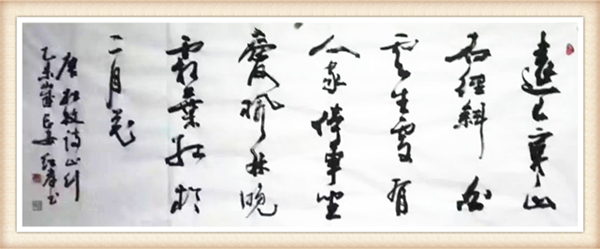 遠上寒山
石徑斜白
雲生處有
人家停車坐
愛楓林晚
霜葉紅於
二月花
唐杜牧詩山行
乙未歲長安紅書